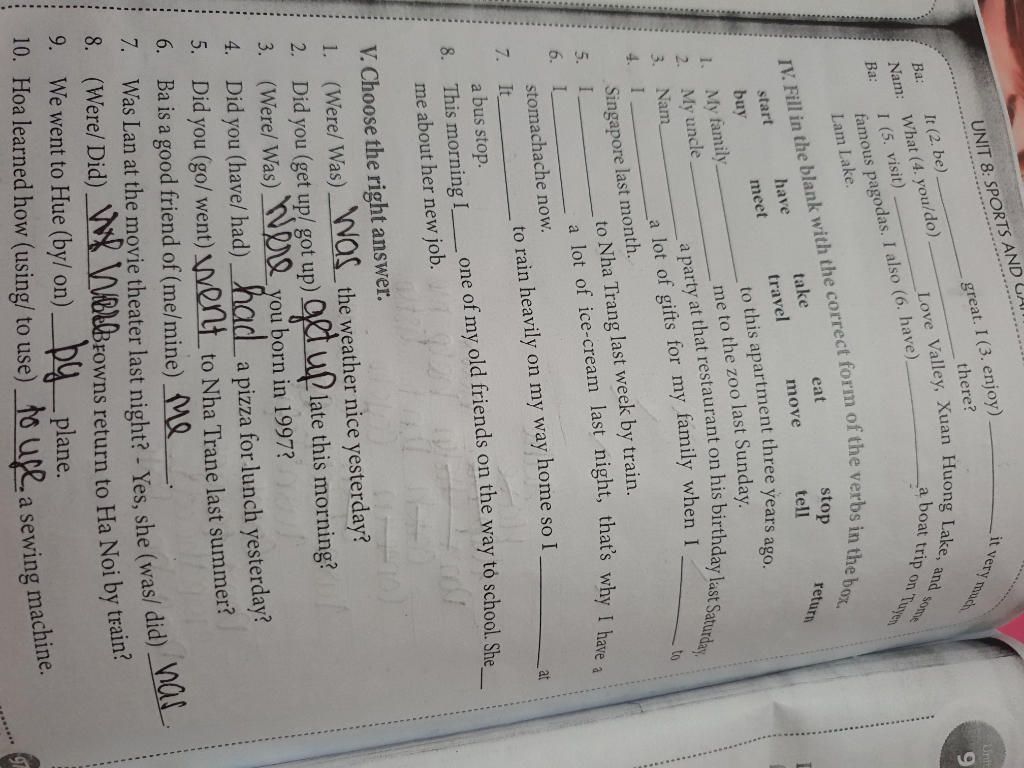 UNIT 8: SPORTS AND GA
Ba: It (2. be) ________ great. I (3. enjoy) ________ it very much
Nam: What (4. you/do) ________ there?
Ba: I (5. visit) ________ Love Valley, Xuan Huong Lake, and some
famous pagodas. I also (6. have) ________ a boat trip on Tuyen
Lam Lake.
IV. Fill in the blank with the correct form of the verbs in the box.
start have take eat stop return
buy meet travel move tell
1. My family ________ to this apartment three years ago.
2. My uncle ________ me to the zoo last Sunday.
3. Nam ________ a party at that restaurant on his birthday last Saturday.
4. I ________ a lot of gifts for my family when I ________ to
Singapore last month.
5. I ________ to Nha Trang last week by train.
6. I ________ a lot of ice-cream last night, that's why I have a
stomachache now.
7. It ________ to rain heavily on my way home so I ________ at
a bus stop.
8. This morning I ____ one of my old friends on the way to school. She ____
me about her new job.
V. Choose the right answer.
1. (Were/ Was) was the weather nice yesterday?
2. Did you (get up/ got up) get up late this morning?
3. (Were/ Was) were you born in 1997?
4. Did you (have/ had) had a pizza for lunch yesterday?
5. Did you (go/ went) went to Nha Trane last summer?
6. Ba is a good friend of (me/mine) me.
7. Was Lan at the movie theater last night? - Yes, she (was/ did) was.
8. (Were/ Did) were Browns return to Ha Noi by train?
9. We went to Hue (by/ on) by plane.
10. Hoa learned how (using/ to use) to use a sewing machine.
9